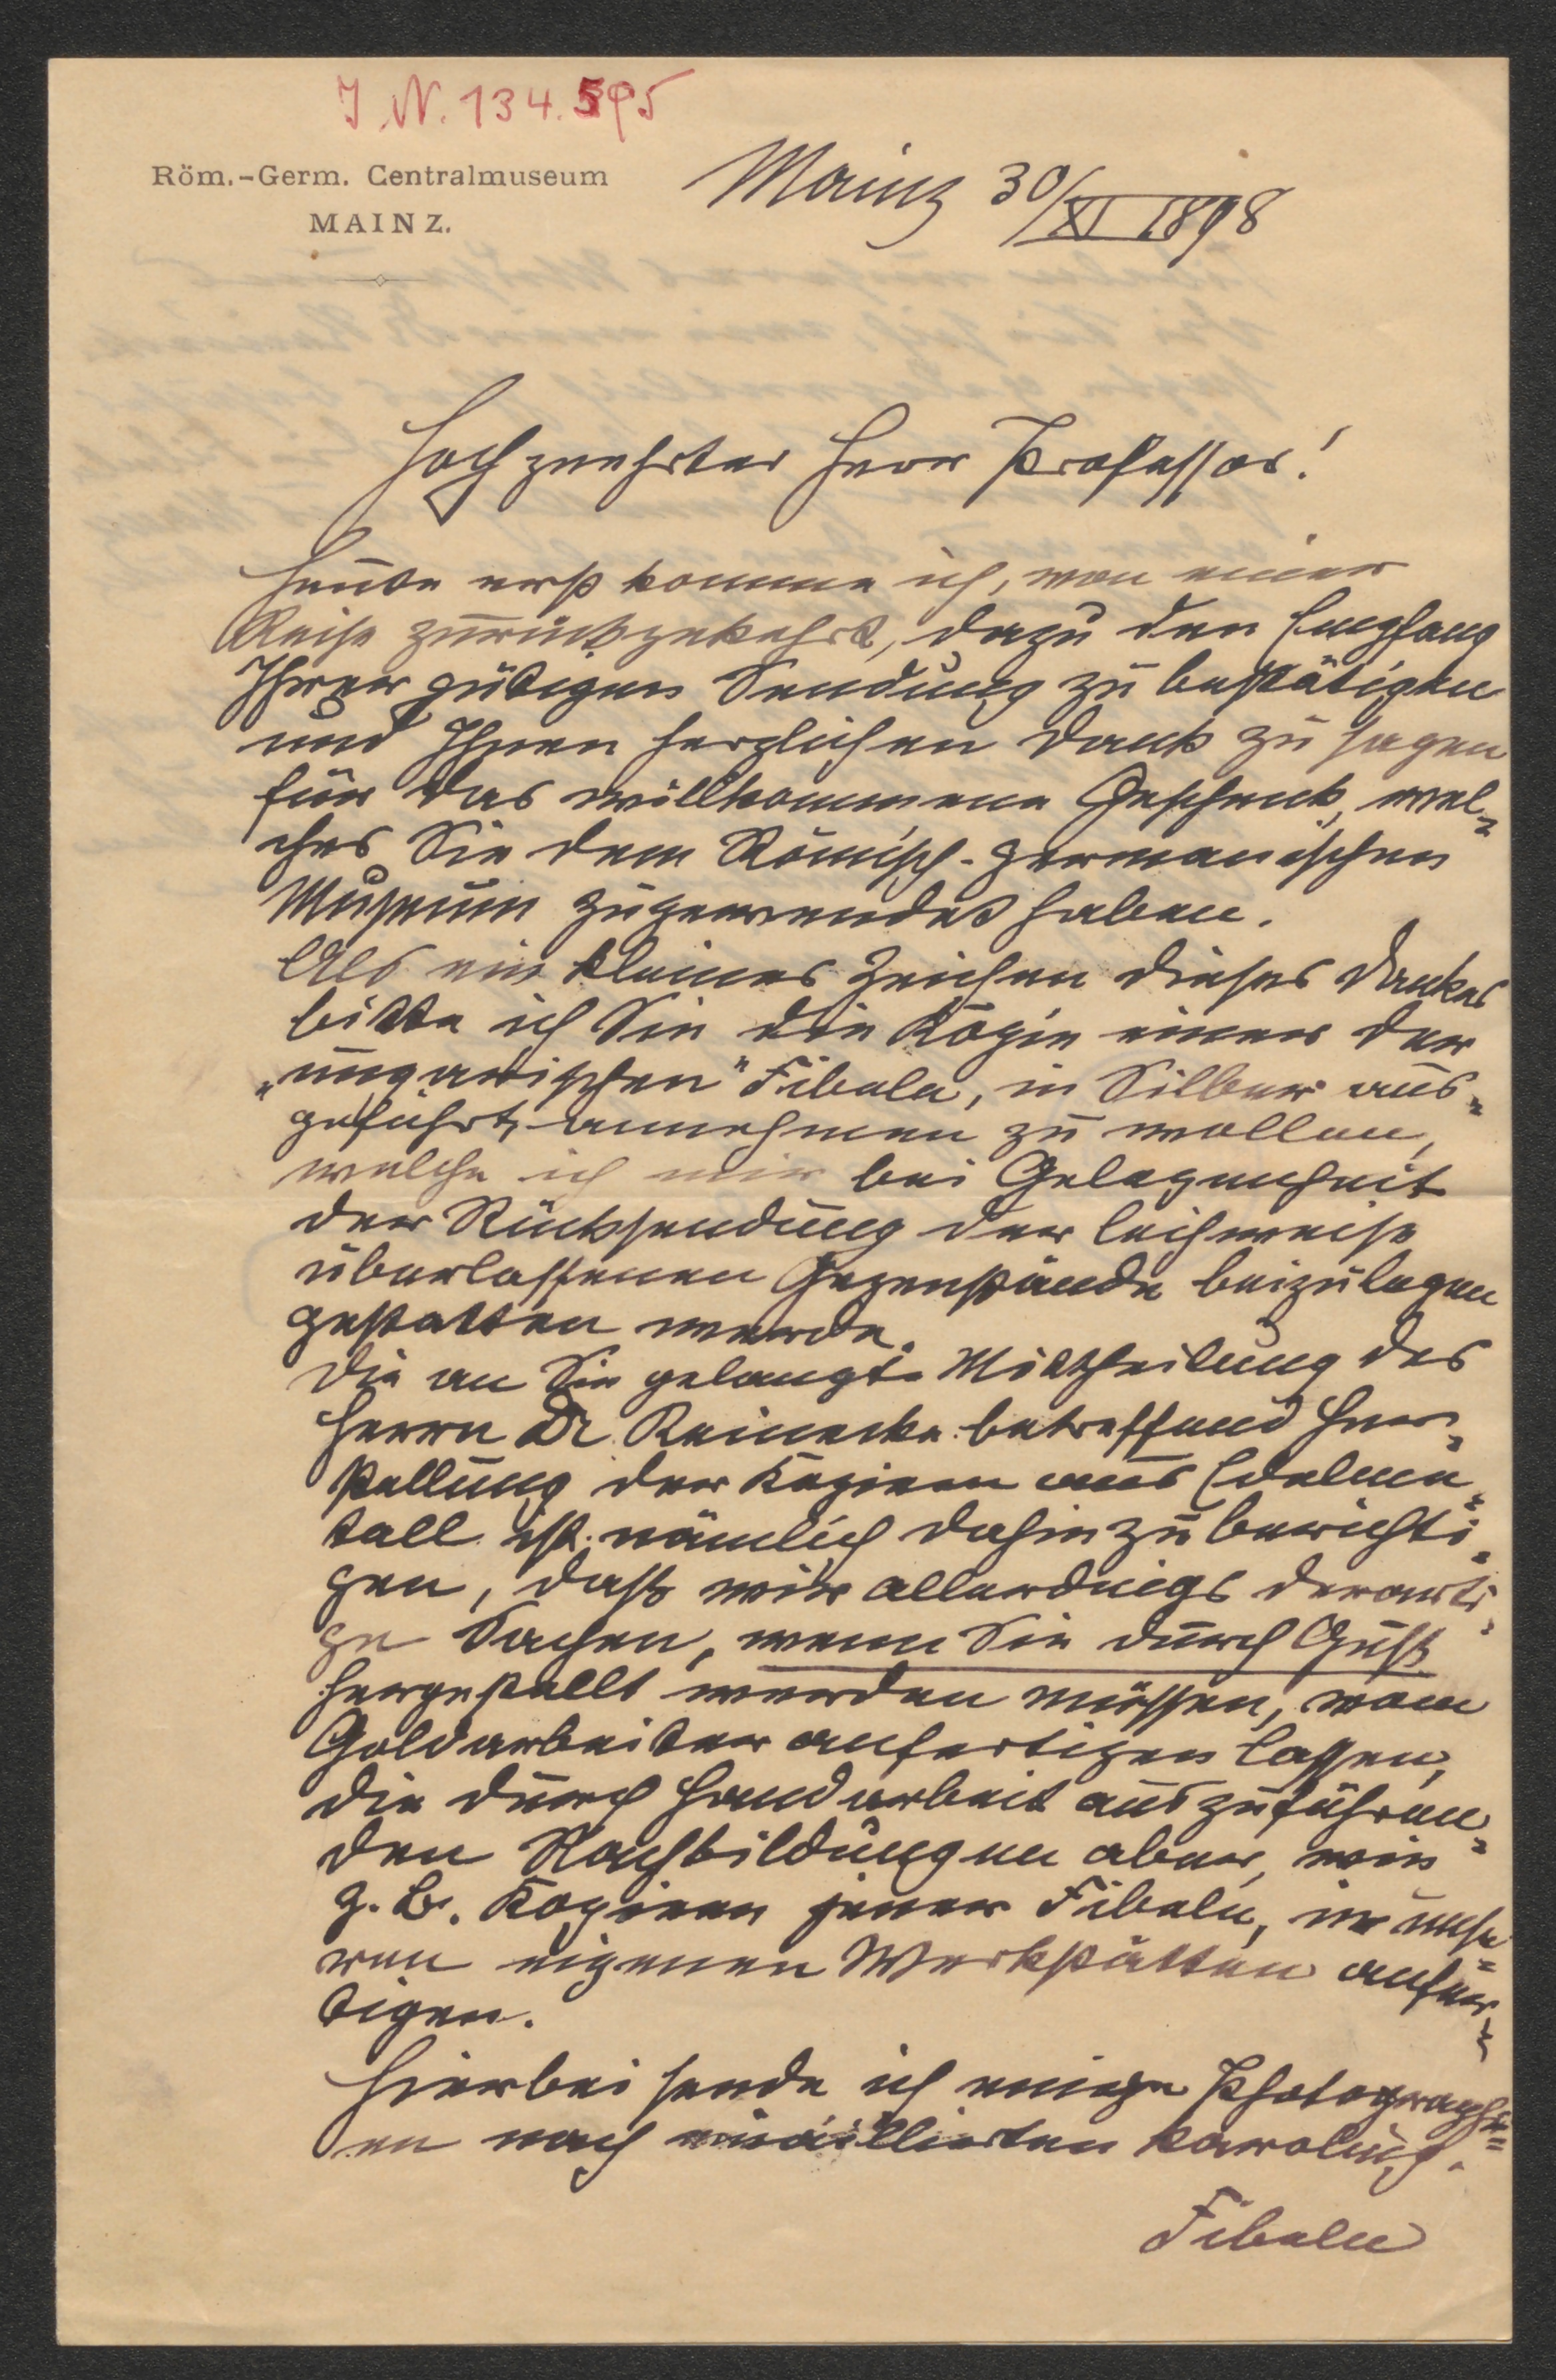 J.N. 134.595
Röm.-Germ. Centralmuseum
MAINZ.
Mainz 30/XI 1898
Hochgeehrter Herr Professor!
Heute erst komme ich, von einer
Reise zurückgekehrt, dazu den Empfang
Ihrer gütigen Sendung zu bestätigen
und Ihnen herzlichen Dank zu sagen
für das willkommene Geschenk, wel=
ches Sie dem Römisch-germanischen
Museum zugewendet haben.
Als ein kleines Zeichen dieses Dankes
bitte ich Sie die Kopie einer der
„ungarischen" Fibeln, in Silber aus=
geführt, annehmen zu wollen,
welche ich mir bei Gelegenheit
der Rücksendung der leihweise
überlassenen Gegenstände beizulegen
gestatten werde.
Die an Sie gelangte Mittheilung des
Herrn Dr. Reinecke betreffend Her=
stellung der Kopieen aus Edelme=
tall ist nämlich dahin zu berichti=
gen, daß wir allerdings derarti=
ge Sachen, wenn Sie durch Guß
hergestellt werden müssen, vom
Goldarbeiter anfertigen lassen,
die durch Handarbeit auszuführen=
den Nachbildungen aber, wie
z. B. Kopieen jener Fibeln, in unse=
ren eigenen Werkstätten anfer=
tigen.
Hierbei sende ich einige Photographi=
en nach emaillierten karoling.
Fibeln